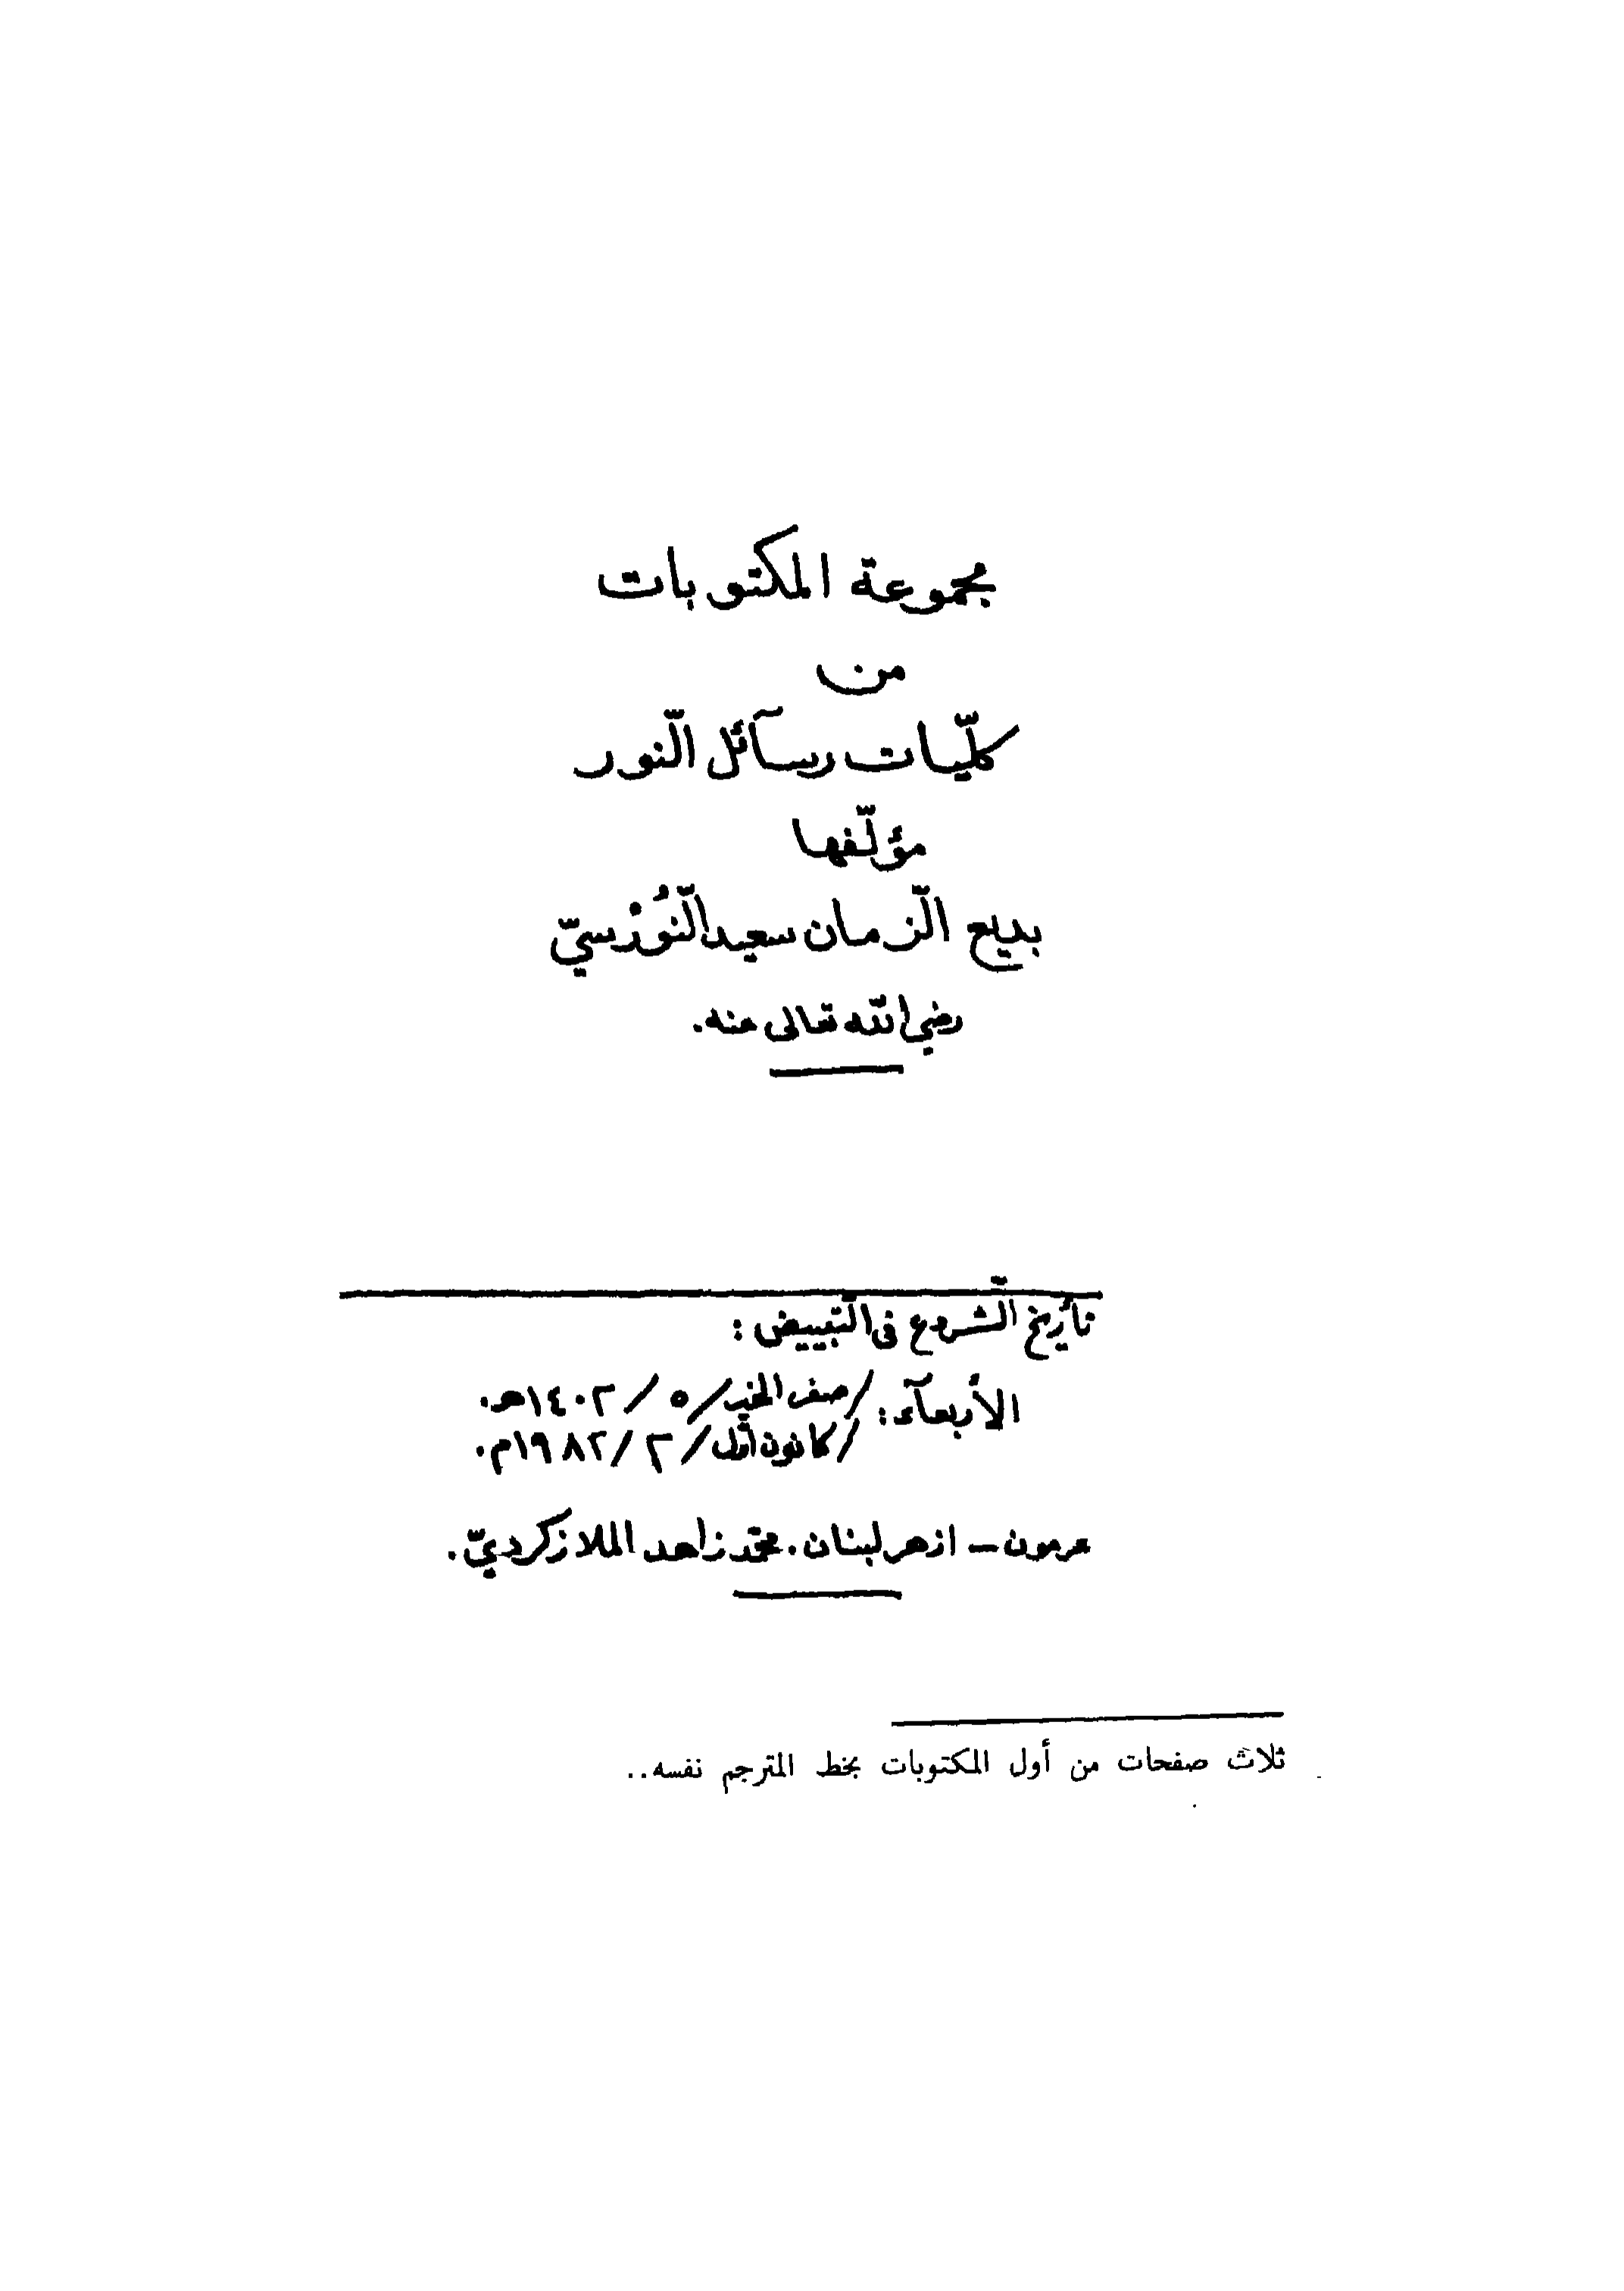 مجموعة المكتوبات
من
كلّيات رسآئل النّور
مؤلّفها
بديع الزّمان سعيد النّورْسيّ
رضي الله تعالى عنه.
تأريخ الشّروع في التّبييض :
الأربعآء: /صفر الخير/ ٥ / ١٤٠٢هـ.
/كانون أول/ ٢ / ١٩٨٢م.
عرمون – ازهر لبنان. محمّد زاهد الملازكرديّ.
ثلاث صفحات من أول المكتوبات بخط المترجم نفسه..